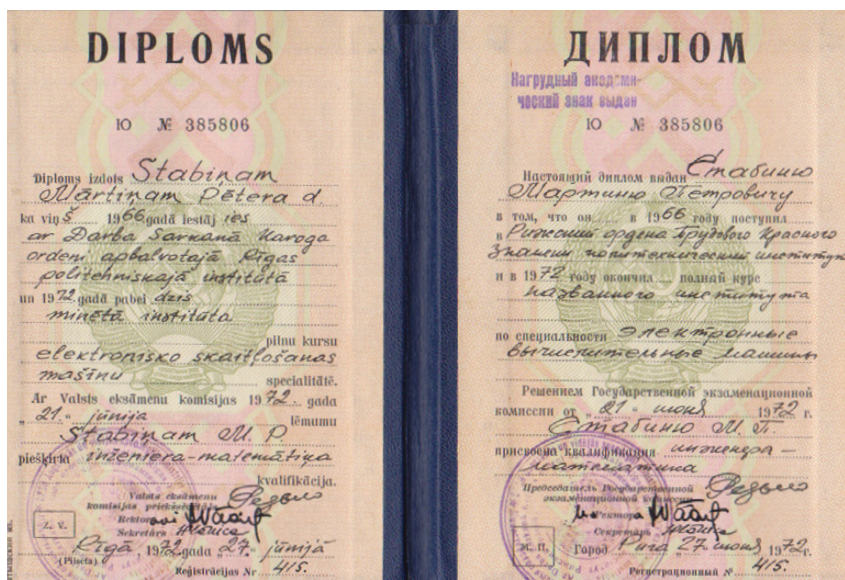 DIPLOMS
Ю № 385806
Diploms izdots Stabiņam
Mārtiņam Pētera d.
ka viņš 1966 gadā iestājies
ar Darba Sarkanā Karoga
ordeni apbalvotajā Rīgas
politehniskajā institūtā
un 1972 gadā pabeidzis
minētā institūta
pilnu kursu
elektronisko skaitļošanas
mašīnu specialitātē.
Ar Valsts eksāmenu komisijas 1972. gada
„21.“ jūnija lēmumu
Stabiņam M. P.
piešķirta inženiera-matemātiķa
kvalifikācija.
Valsts eksāmenu
komisijas priekšsēdētājs
Rektors
Sekretārs
Z. V.
Rīgā, 1972 gada 27. jūnijā
(Pilsēta)
Reģistrācijas Nr 415.
ДИПЛОМ
Нагрудный академи-
ческий знак выдан
Ю № 385806
Настоящий диплом выдан Стабиню
Мартиню Петровичу
в том, что он в 1966 году поступил
в Рижский ордена Трудового Красного
Знамени политехнический институт
и в 1972 году окончил полный курс
названного института
по специальности электронные
вычислительные машины
Решением Государственной экзаменационной
комиссии от „21“ июня 1972 г.
Стабиню М. П.
присвоена квалификация инженера-
математика
Председатель Государственной
экзаменационной комиссии
Ректор
Секретарь
М. П.
Город Рига, 27 июня 1972 г.
Регистрационный № 415.